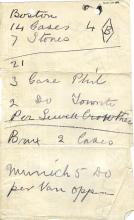 Boston
14 Cases 4 B
7 Stones
21
3 Case Phil
2 Do Toronto
Per Sewell
Brux 2 Cases
Munich 5 Do
per Van